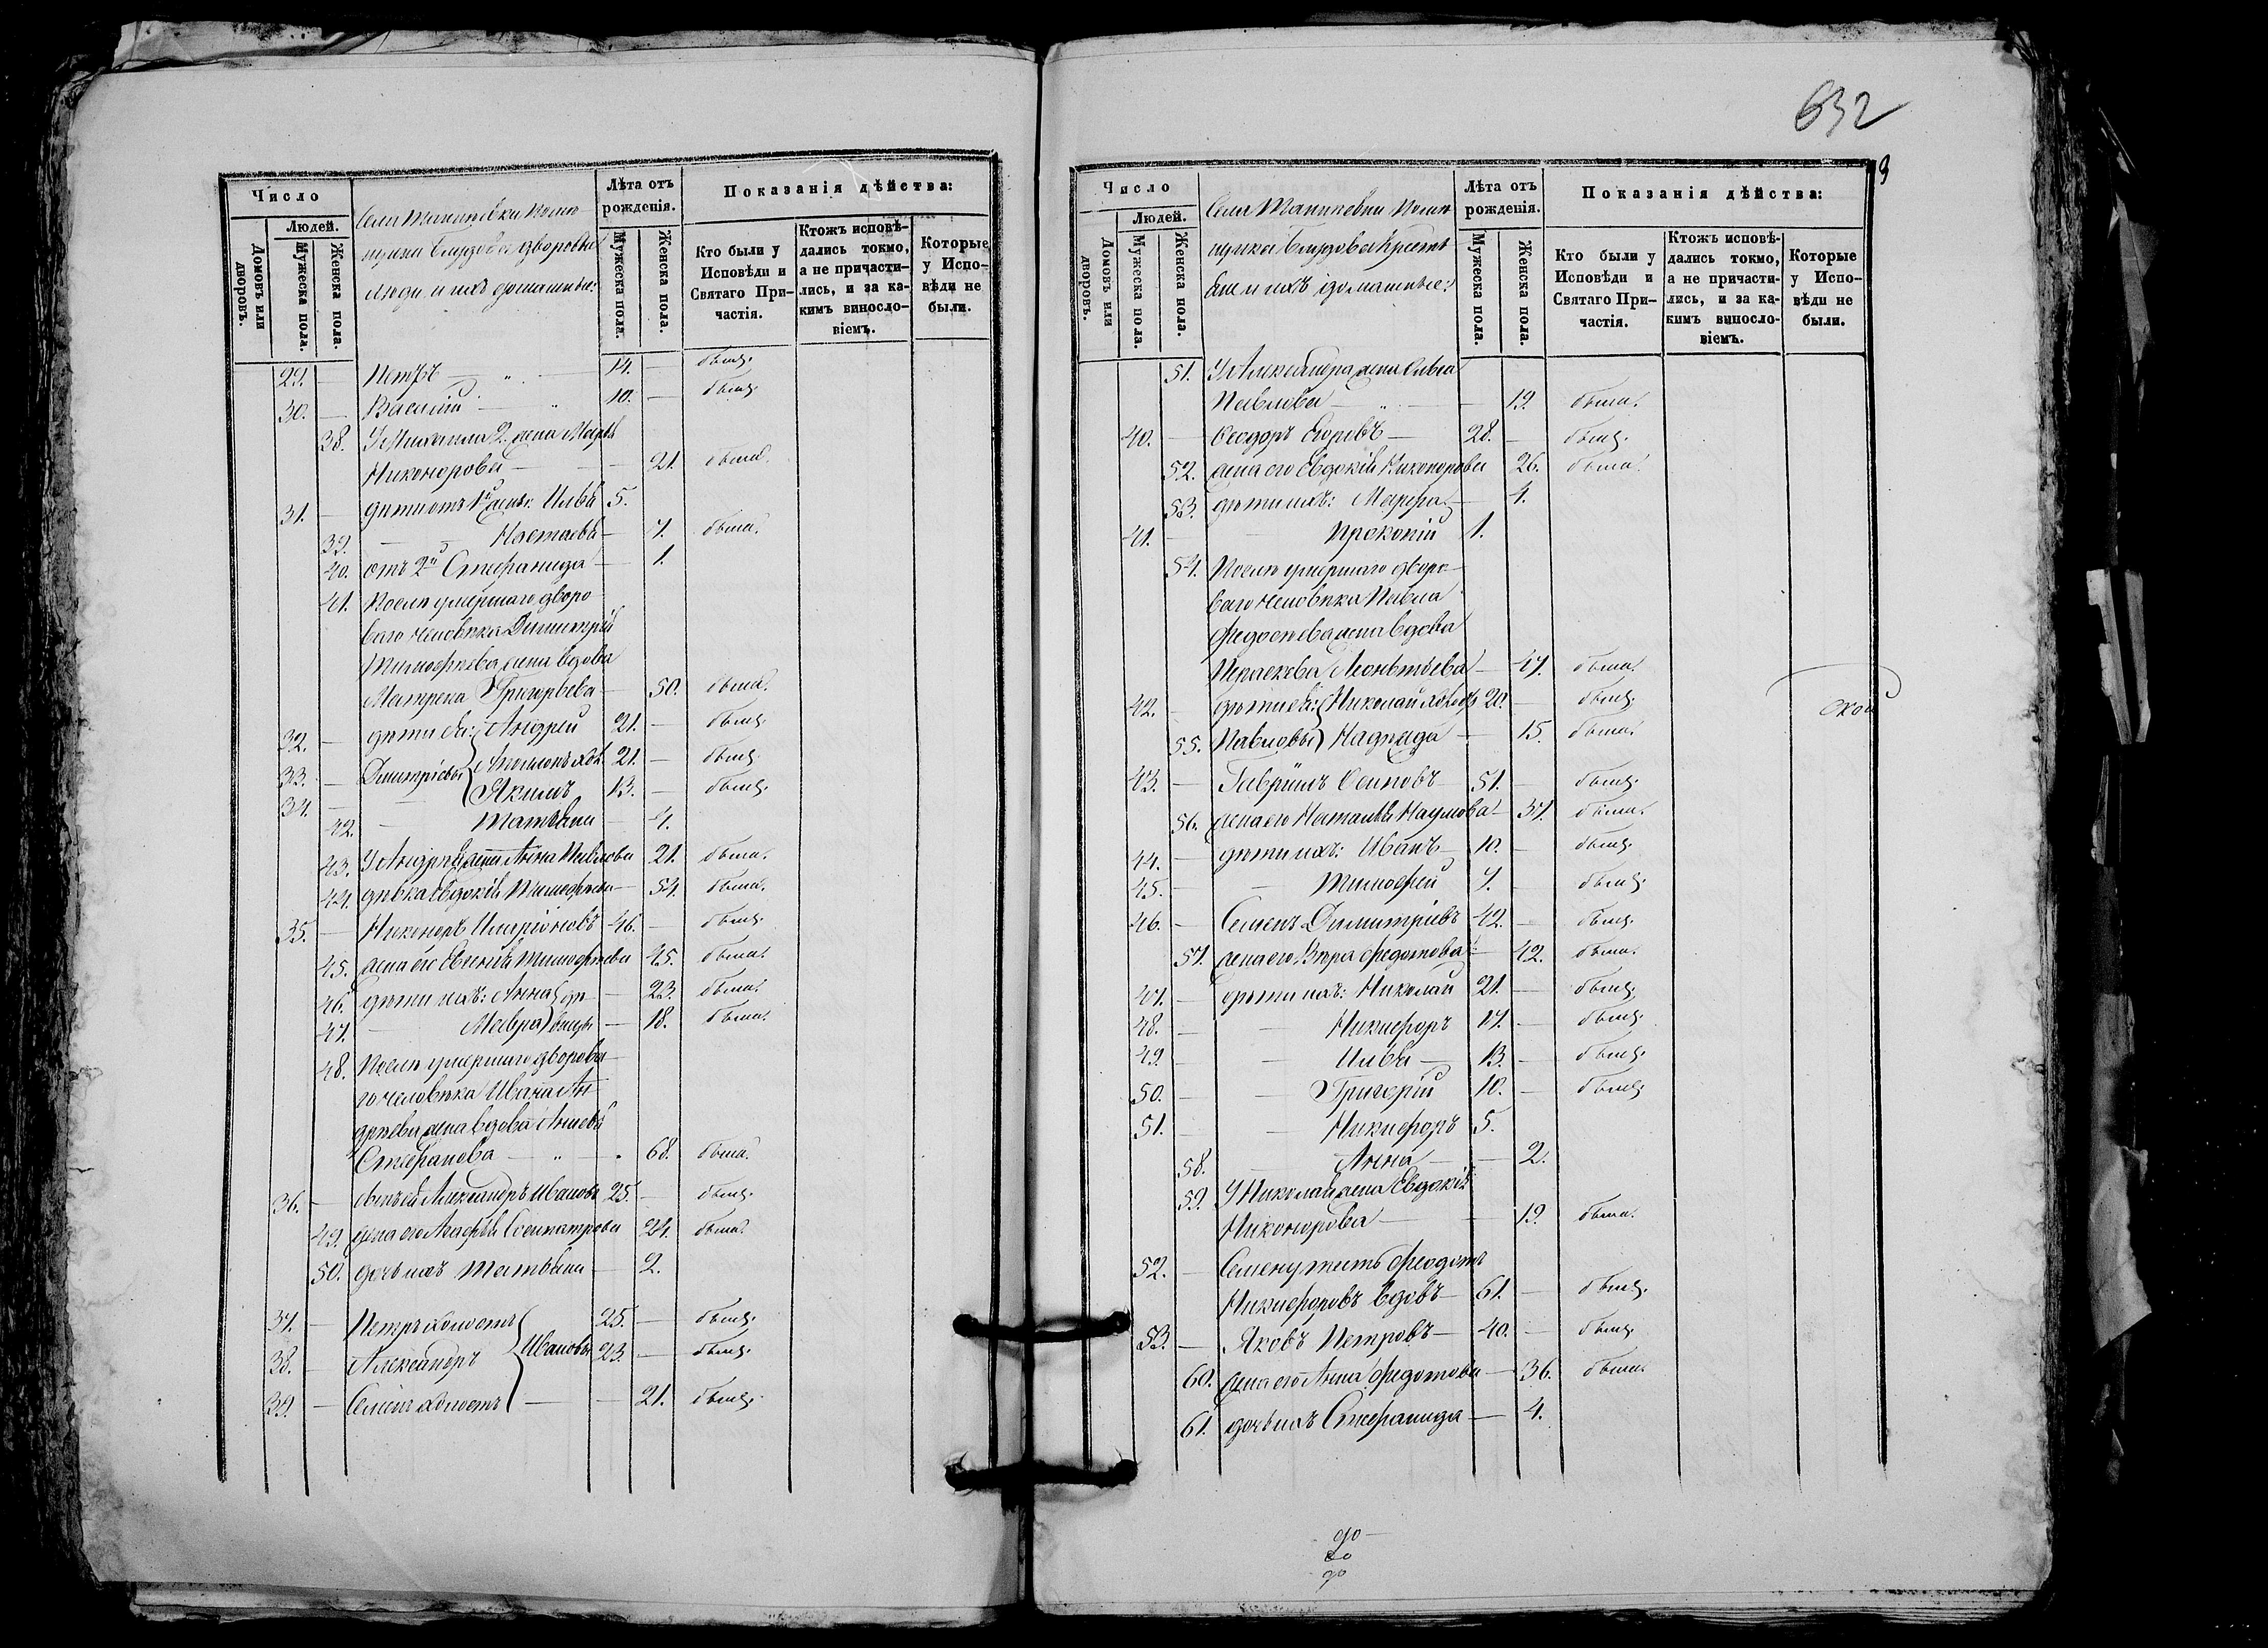 632
9
Число
Людей.
Домовъ или дворовъ.
Мужеска пола.
Женска пола.
помѣ-
щика дворовые
люди и ихъ домашные:
Лѣта отъ
рожденія.
Мужеска пола.
Женска пола.
Показанія дѣйства:
Кто были у
Исповѣди и
Святаго При-
частія.
Ктожъ исповѣ-
дались токмо,
а не причасти-
лись, и за ка-
кимъ винсло-
віемъ.
Которые
у Испо-
вѣди не
были.
29. — Петръ — 14. — былъ.
30. — Василій — 10. — былъ.
38. У Михаила 2. жена Марѳа
Никонорова — 21. была.
31. — дѣти отъ 1й жены: Илья 5.
39. — Настасья — 7. была.
40. отъ 2й Стефанида — 1.
41. Послѣ умершаго дворо-
ваго человѣка Димитрія
Тимофѣева жена вдова
Матрена Григорьева — 50. была.
32. — дѣти ея: Андрей 21. — былъ.
33. — Димитріевы хол. 21. — былъ.
34. — Якимъ 13. — былъ.
42. — Татьяна — 4.
43. У Андрея жена Анна Павлова 21. была.
44. дѣвка Евдокія Тимофѣева — 54. была.
35. — Никоноръ Иларіоновъ 46. — былъ.
45. жена его Евгенія Тимофѣева 45. была.
46. дѣти ихъ: Анна дѣ- — 23. была.
47. — Мавра вицы — 18. была.
48. Послѣ умершаго дворова-
го человѣка Ивана Ан-
дрѣева жена вдова
Стефанова — 68. была.
36. — Александръ Ивановъ 25. — былъ.
49. жена его Агафья Сосипатрова 24. была.
50. дочь ихъ Татьяна — 2.
37. — Петръ холостъ 25. — былъ.
38. — Александръ Ивановы 23. — былъ.
39. — Семенъ холостъ — 21. былъ.
Число
Людей.
Домовъ или дворовъ.
Мужеска пола.
Женска пола.
помѣ-
щика крестья-
не и ихъ домашные:
Лѣта отъ
рожденія.
Мужеска пола.
Женска пола.
Показанія дѣйства:
Кто были у
Исповѣди и
Святаго При-
частія.
Ктожъ исповѣ-
дались токмо,
а не причасти-
лись, и за ка-
кимъ винсло-
віемъ.
Которые
у Испо-
вѣди не
были.
51. У Александра жена
Павлова — 19. была.
40. — Ѳеодоръ Егоровъ — 28. — былъ.
52. жена его Евдокія Никонорова 26. была.
53. дѣти ихъ: Марфа — 4.
41. — Прокопій 1.
54. Послѣ умершаго дворо-
ваго человѣка Павла
Федосѣева жена вдова
Параскева Леонтьева — 47. была.
42. — дѣти ея: Николай холостъ 20. — былъ.
55. Павловы Надежда — 15. была.
43. — Гавріилъ Осиповъ 51. — былъ.
56. жена его Наталья Наумова — 37. была.
44. — дѣти ихъ: Иванъ 10. — былъ.
45. — Тимофей 7. — былъ.
46. — Семенъ Димитріевъ 42. — былъ.
57. жена его Вѣра Федотова — 42. была.
47. — дѣти ихъ: Николай 21. — былъ.
48. — Никифоръ 17. — былъ.
49. — Илья — 13. — былъ.
50. — Григорій 10. — былъ.
51. — Никифоръ 5.
58. — Анна — 2.
59. У Николая жена Евдокія
Никонорова — 19. была.
52. — Семену тесть Ѳеодотъ
Никифоровъ вдовъ — 61. — былъ.
53. — Яковъ Петровъ — 40. — былъ.
60. жена его Анна Федотова — 36. была.
61. дочь ихъ Стефанида — 4.